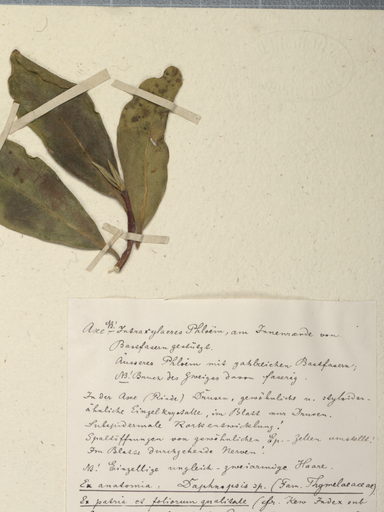 Axe N! Intraxyläres Phloëm, am Innenrande von
Bastfasern gestützt.
Äusseres Phloëm mit zahlreichen Bastfasern;
NB! Bruch des Zweiges davon faserig.
In der Axe (Rinde) Drusen, gewöhnliche u. styloiden-
ähnliche Einzelkrystalle, im Blatt nur Drusen.
Subepidermale Korkentwicklung!
Spaltöffnungen von gewöhnlichen Ep.-Zellen umstellt!
Im Blatte durchgehende Nerven!
NB! Einzellige ungleich-zweiarmige Haare.
Ex anatomia: Daphnopsis sp. (Fam. Thymelaeaceae)
Ex patria et foliorum qualitate (cfr. Kew Index